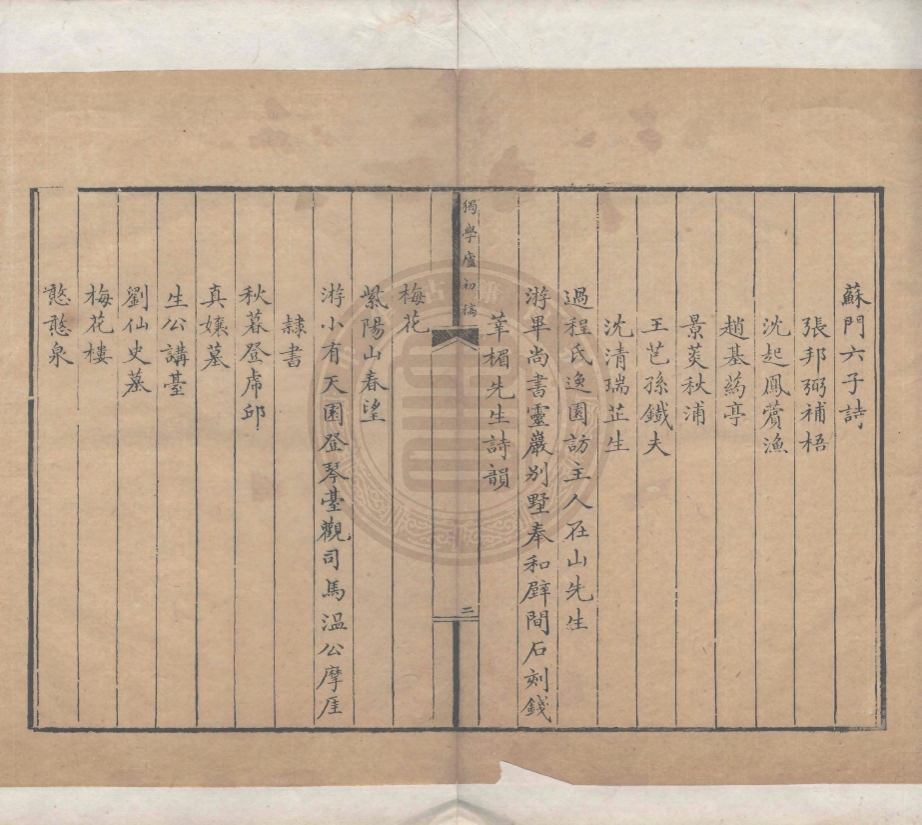 蘇門六子詩
張邦弼補梧
沈起鳳薲漁
趙基葯亭
景菼秋浦
王芑孫鐵夫
沈清瑞芷生
過程氏逸園訪主人在山先生
游畢尚書靈巖别墅奉和壁間石刻錢
莘楣先生詩韻
獨學廬初稿
二
梅花
紫陽山春望
游小有天園登琴臺觀司馬溫公摩厓
隸書
秋暮登虎邱
真孃墓
生公講臺
劉仙史墓
梅花樓
憨憨泉